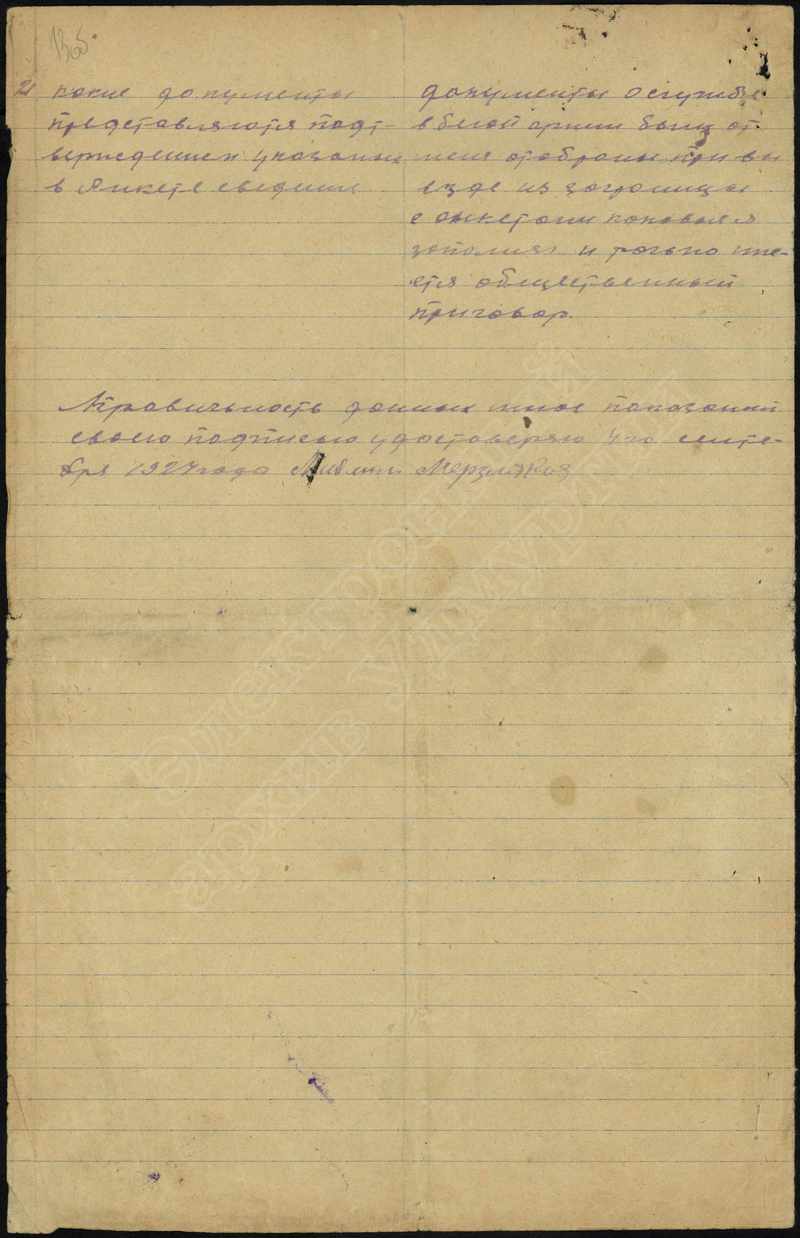 136.
21 какие документы
представляются подт-
верждением указаных
в Анкете сведении
документы о службе
в белой армии были от
меня отобраны при вы
езде из заграницы
с анкетами каковые я
заполнял и только име-
ется общественный
приговор.
Правильность данных мною показаний
своею подписью удостоверяю 4го сентя-
бря 1924 года Мерзляков
Электронный
архив Удмуртии